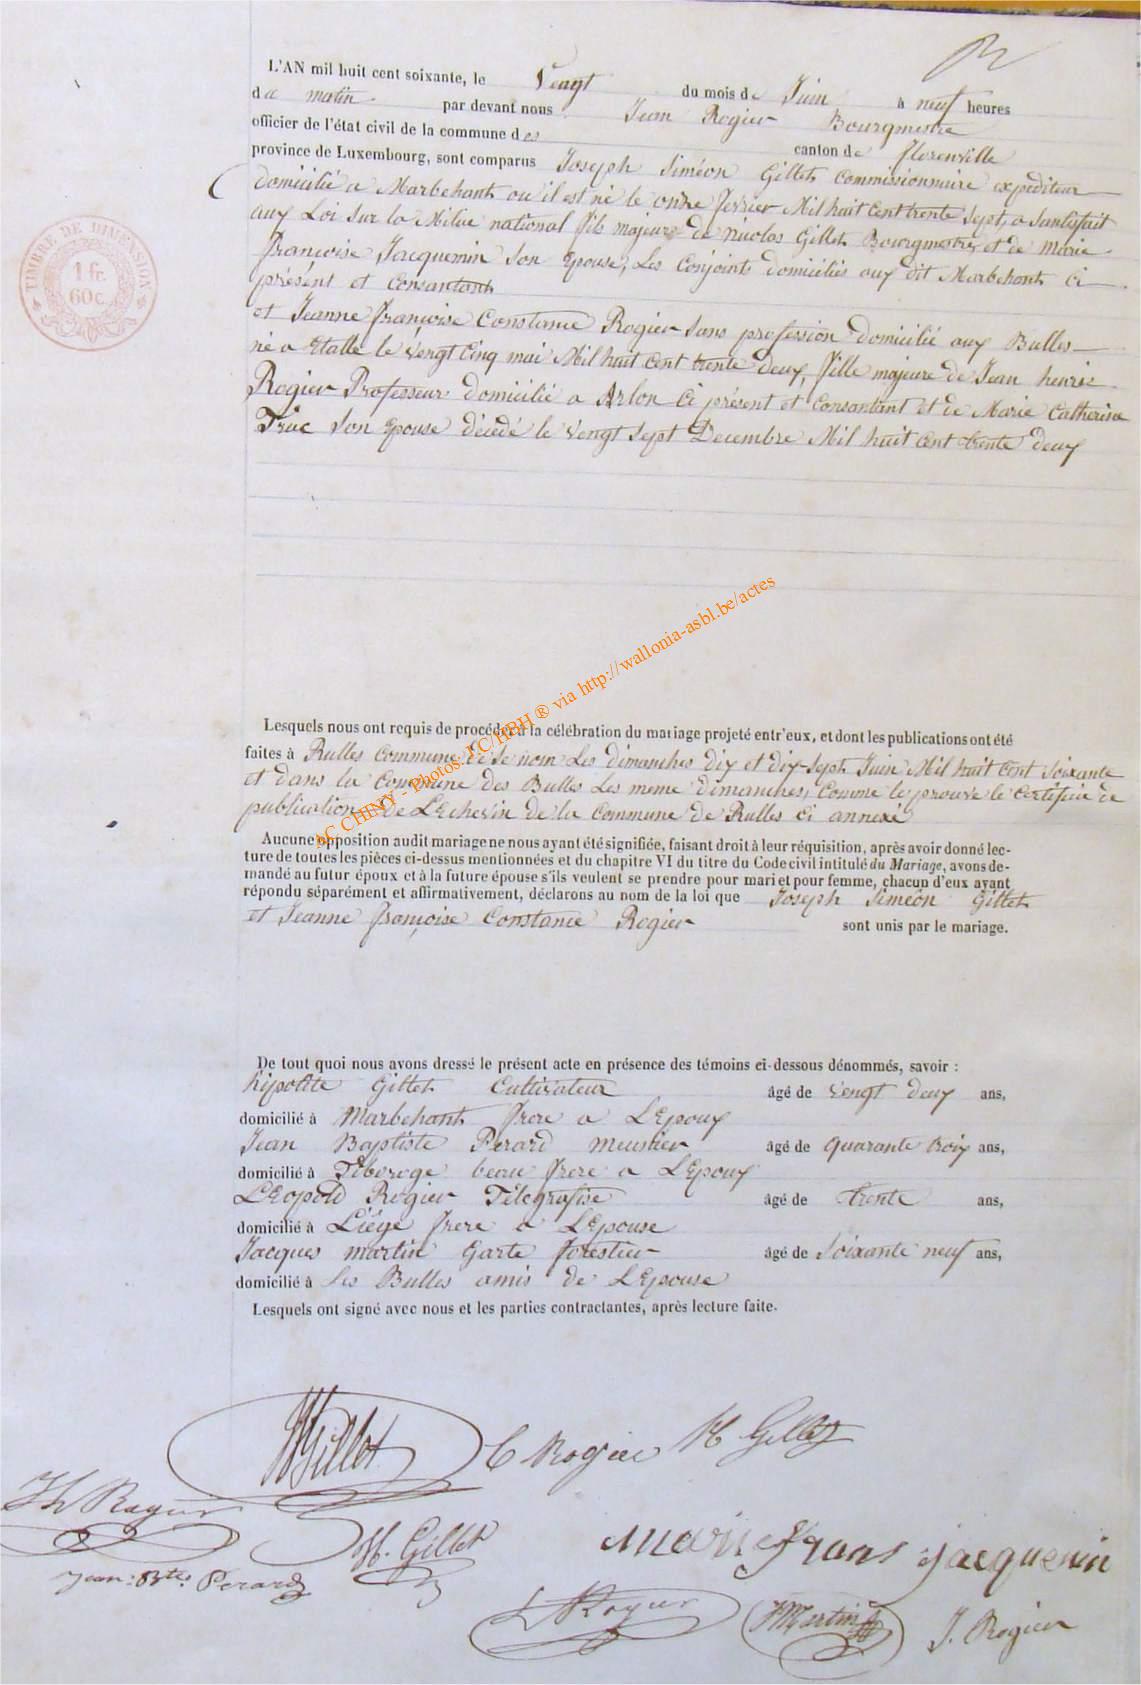 L'AN mil huit cent soixante, le Vengt du mois de Juin à neuf heures
du matin par devant nous Jean Rogier Bourgmestre
officier de l'état civil de la commune des canton de florenville
province de Luxembourg, sont comparus Joseph Siméon Gillet Commissionnaire expéditeur
domicilié a Marbehant ou il est né le onze ferrier Mil huit Cent trente Sept, a Santisfait
aux Loi sur la Milice national fils majeure de Nicolas Gillet Bourgmestre, et de Marie
françoise Jacquemin Son Epouse, Les Conjoints domiciliés aux dit Marbehant Ci
présent et Consantant
et Jeanne françoise Constance Rogier Sans profession domicilié aux Bulles
né a Etalle le Vengt Cinq mai Mil huit Cent trente deux, fille majeure de Jean henris
Rogier Professeur domicilié a Arlon Ci présent et Consantant et de Marie Catherine
Son Epouse décédé le Vengt Sept Decembre Mil huit Cent trente deux
Lesquels nous ont requis de procéder à la célébration du mariage projeté entr'eux, et dont les publications ont été
faites à Rulles Commune de Se nom Les dimanches dix et dix-Sept Juin Mil huit Cent Soixante
et dans la Commune des Bulles Les meme dimanches, Comme le prouve le Certificat de
publication de L'Echevin de la Commune de Rulles Ci annexé
Aucune opposition audit mariage ne nous ayant été signifiée, faisant droit à leur réquisition, après avoir donné lec-
ture de toutes les pièces ci-dessus mentionnées et du chapitre VI du titre du Code civil intitulé du Mariage, avons de-
mandé au futur époux et à la future épouse s'ils veulent se prendre pour mari et pour femme, chacun d'eux ayant
répondu séparément et affirmativement, déclarons au nom de la loi que Joseph Siméon Gillet
et Jeanne françoise Constance Rogier sont unis par le mariage.
De tout quoi nous avons dressé le présent acte en présence des témoins ci-dessous dénommés, savoir :
hipolite Gillet Cultivateur âgé de vengt deux ans,
domicilié à Marbehant frere a L'Epoux
Jean Baptiste Perard Meunier âgé de quarante troix ans,
domicilié à beau frere a L'Epoux
LEopold Rogier Télégrafise âgé de trente ans,
domicilié à Liége frere a L'Epouse
Jacques martin Garte forestier âgé de Soixante neuf ans,
domicilié à les Bulles amis de L'Epouse
Lesquels ont signé avec nous et les parties contractantes, après lecture faite.
Gillet C Rogier H Gillet
H. Gillet Marie Frans Jacquemin
Jean: Bte Perard
J. Rogier
TIMBRE DE DIMENSION
1 fr.
60 c.
AC CHINY - Photos: LC/HBH ® via http://wallonia-asbl.be/actes